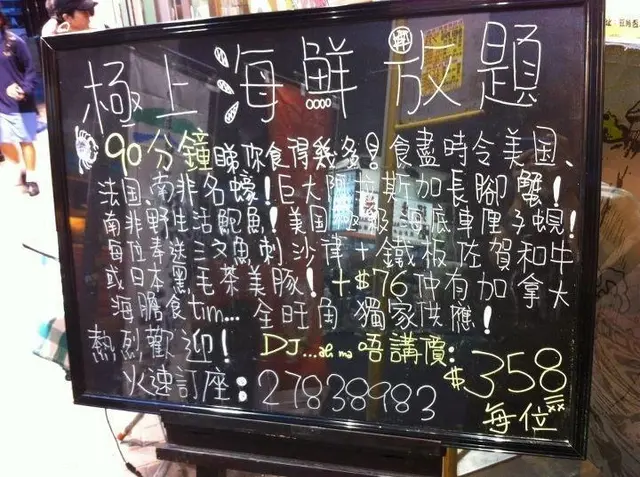 極上海鮮放題
90分鐘睇你食得幾多！食盡時令美国、
法国、南非名蠔！巨大阿拉斯加長腳蟹！
南非野生活鮑魚！美国 級海底車厘子蜆！
每位奉送三文魚刺沙律+鐵板佐賀和牛
或日本黑毛茶美豚！+$76仲有加拿大
海膽食tim...全旺角獨家供應！
熱烈歡迎！DJ...ah ma唔講價：
$358
火速訂座：27838983
每位